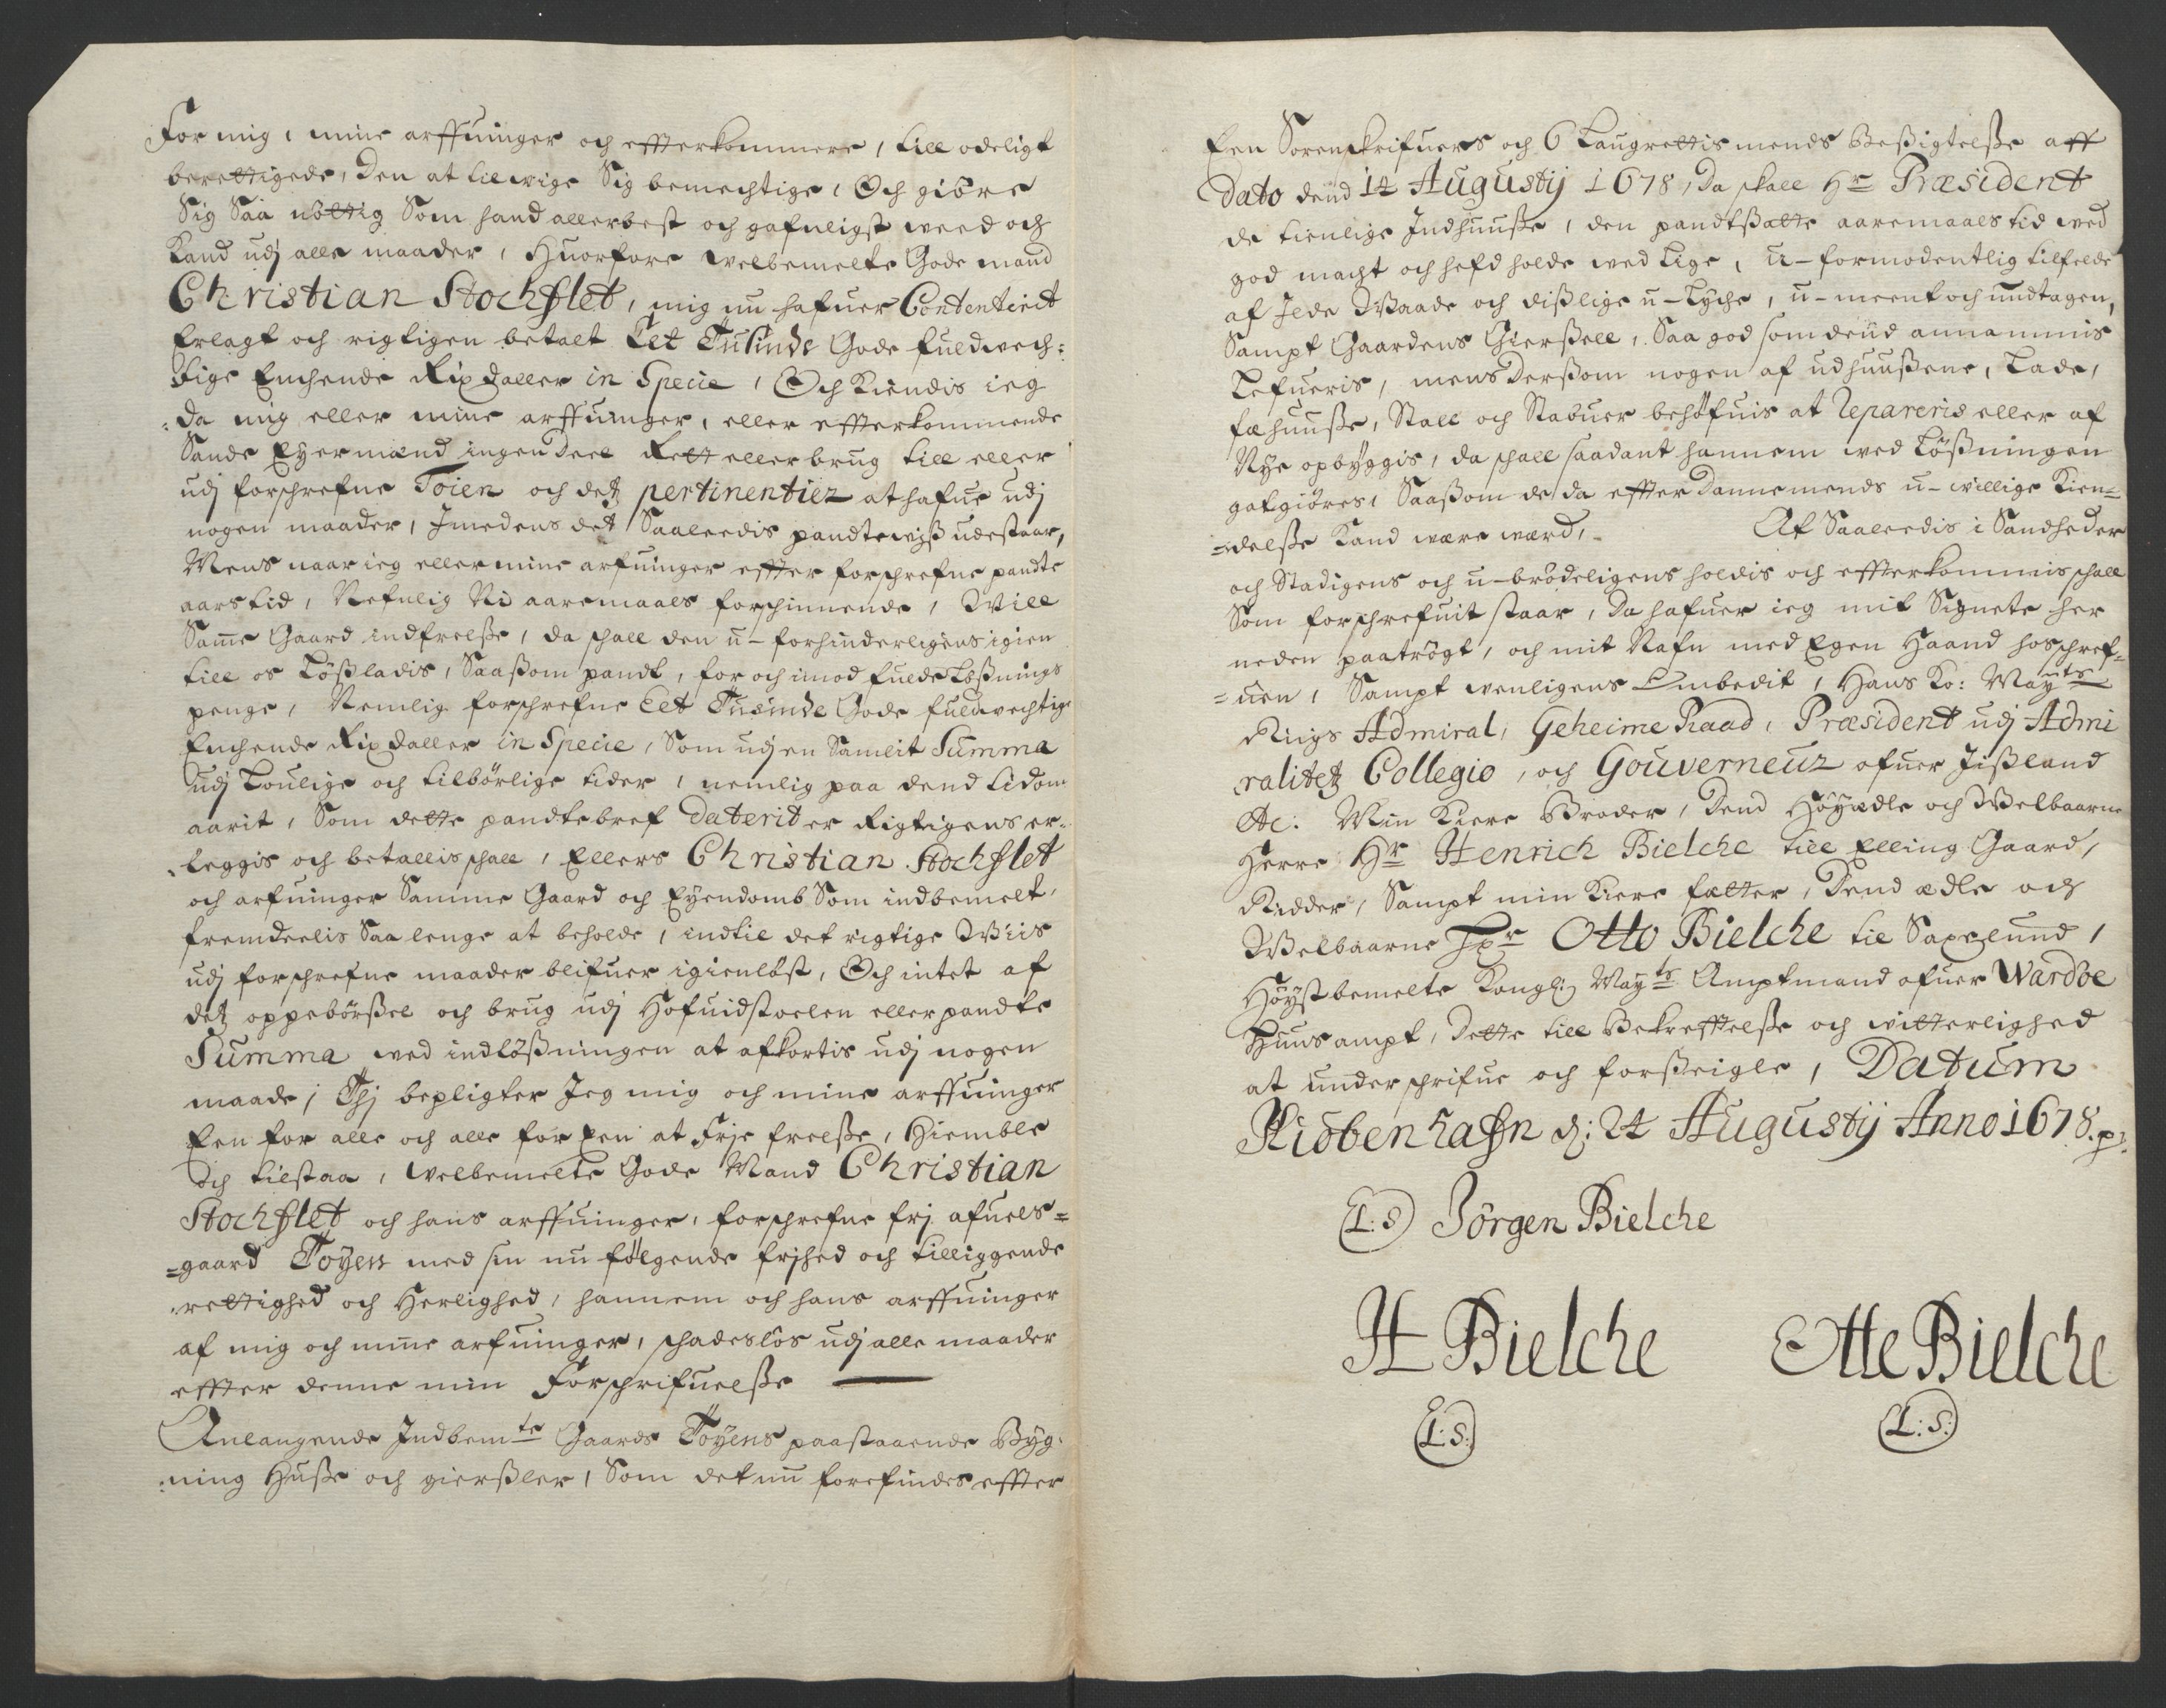 For mig, mine arffuinger och effterkommere, till odeligt
berettigede, Den at tileige Sig bemechtige, Och giöre
Sig Saa nöttig Som hand allerbest och gafnligst weed och
Kand udj alle maader, Huorfore welbemelte Gode mand
Christian Stochflet, mig nu hafuer Contenterit
Erlagt och rigtigen betalt Eet Tusinde Gode fuldwech:
tige Enchende Rixdaller in Specie, Och Kiendis ieg
da mig eller mine arffuinger, eller effterkommende
Sande Eyermænd ingen Deel Rett eller brug till eller
udj forschrefne Toien och detz pertinentier at hafue udj
nogen maader, Imedens det Saaleedis pandtewiß udestaar,
Mens naar ieg eller mine arfuinger effter forschrefne pandte
aars tid, Nefnlig Ni aaremaals forschinnende, Will
Same Gaard indfrelße, da schall den u-forhinderligens igien
till os Lößladis, Saaßom pandt, for och imod fulde Lößnings
penge, Nemlig forschrefne Eet Tusinde Gode fuldwechtige
Enchende Rixdaller in Specie, Som udj en Samlit Summa
udj Loulige och tilbörlige tider, nemlig paa dend tid om
aarit, Som dette pandtebref daterit er Rigtigens er-
leggis och betallis schall, Ellers Christian Stochflet
och arfuinger Samme Gaard och Eyendomb Som indbemelt,
fremdeelis Saa lenge at beholde, indtil det rigtige Wiis
udj forschrefne maader blifuer igienlöst, Och intet af
detz oppebörßel och brug udj Hofuidstoelen eller pandte
Summa wed indlößningen at afkortis udj nogen
maade, Thj bepligter Jeg mig och mine arffuinger
Een for alle och alle for Een at Frje frelße, Hiemble
och tilstaa, welbemelte Gode Mand Christian
Stochflet och hans arffuinger, forschrefne frj afuels=
=gaard Toyen med sin nu fölgende frjhed och tilliggende
rettighed och Herlighed, hannem och hans arffuinger
af mig och mine arfuinger, schadeslös udj alle maader
effter denne min Forschrifuelße
Anlangende Indbemte Gaards Töyens paastaaende Byg-
:ning Huße och gierßler, Som det nu forefindes effter
Een Sorenskrifuers och 6 Laugrettismends Beßigtelße aff
Dato dend 14 Augustij 1678, Da skall Hr Præsident
de tienlige Indhuuße, den pandtßatte aaremaals tid wed
god macht och hefd holde wed Lige, u-formodentlig tilfelde
af Ilds Waade och dißlige u-Lyche, u-meent och undtagen,
Sampt Gaardens Gierßell, Saa god som dend annammis
Lefueris, mens Derßom nogen af udhuußene, Lade,
fæhuuße, Stall och Stabuer behöfuis at Repareris eller af
Nye opbÿggis, da schall saadant hannem wed Lößningen
gotgiöres, Saaßom de da effter Dannemends u-willige Kien=
=delße Kand være værd, At Saaleedis i Sandheder
och Stadigens och u-brödeligens holdis och effterkommis schall
Som forschrefuit staar, Da hafuer ieg mit Signete her
neden paatrögt, och mit Nafn med Egen Haand hosschref=
=uen, Sampt wenligens Ombedit, Hans Ko: Mayts
Riigs Admiral, Geheime Raad, Præsident udj Admi
ralitetz Collegio, och Gouverneur ofuer Jißland
etc: Min Kiere Broder, Dend Höyædle och Welbaarne
Herre Hr Henrich Bielche till Elling Gaard,
Ridder, Sampt min Kiere fætter, Dend ædle och
Welbaarne Hr Otto Bielche til Saxelund,
Höystbemelte Kongl: Mayts Amptmand ofuer Wardöe
Huus ampt, Dette till Bekrefftelße och witterlighed
at underschrifue och forßeigle, Datum
Kiöbenhafn d: 24 Augustij Anno 1678. p:
(L:S) Jörgen Bielche
H Bielche Otte Bielche
(L:S:) (L:S:)